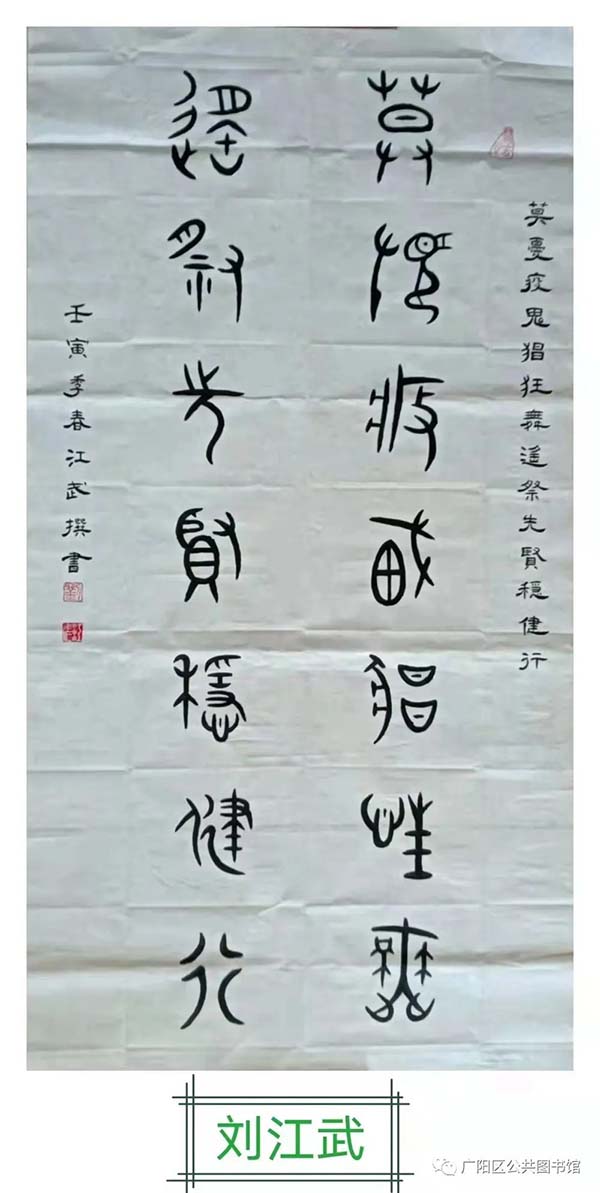 莫憂疫鬼猖狂舞遙祭先賢穩健行
莫憂疫鬼猖狂舞
遙祭先賢穩健行
壬寅季春江武撰書
刘江武
广阳区公共图书馆